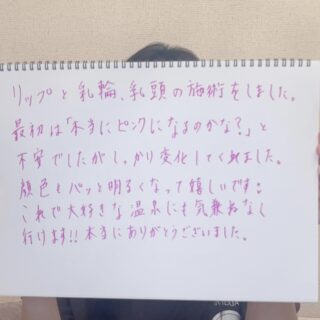 リップと乳輪、乳頭の施術をしました。
最初は「本当にピンクになるのかな?」と
不安でしたがしっかり変化してくれました。
顔色もパッと明るくなって嬉しいです!
これで大好きな温泉にも気兼ねなく
行けます!!本当にありがとうございました。